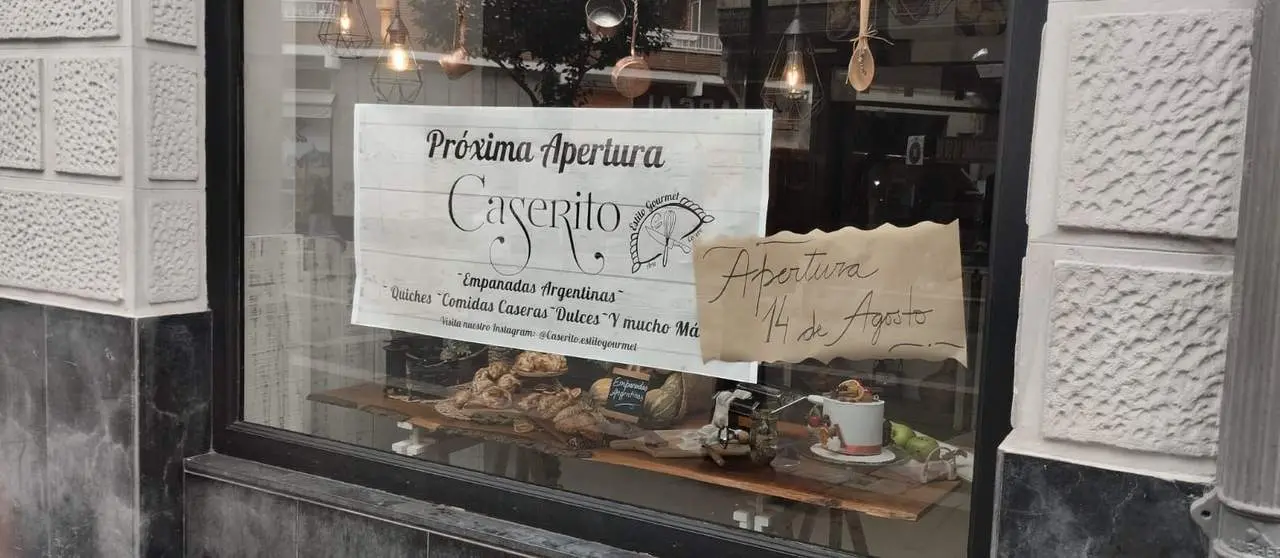 Próxima Apertura
Caserito
Estilo Gourmet
~Empanadas Argentinas~
~Quiches ~Comidas Caseras~Dulces~Y mucho Má
Visita nuestro Instagram: @Caserito.estilogourmet
Apertura
14 de Agosto
Empanadas
Argentinas